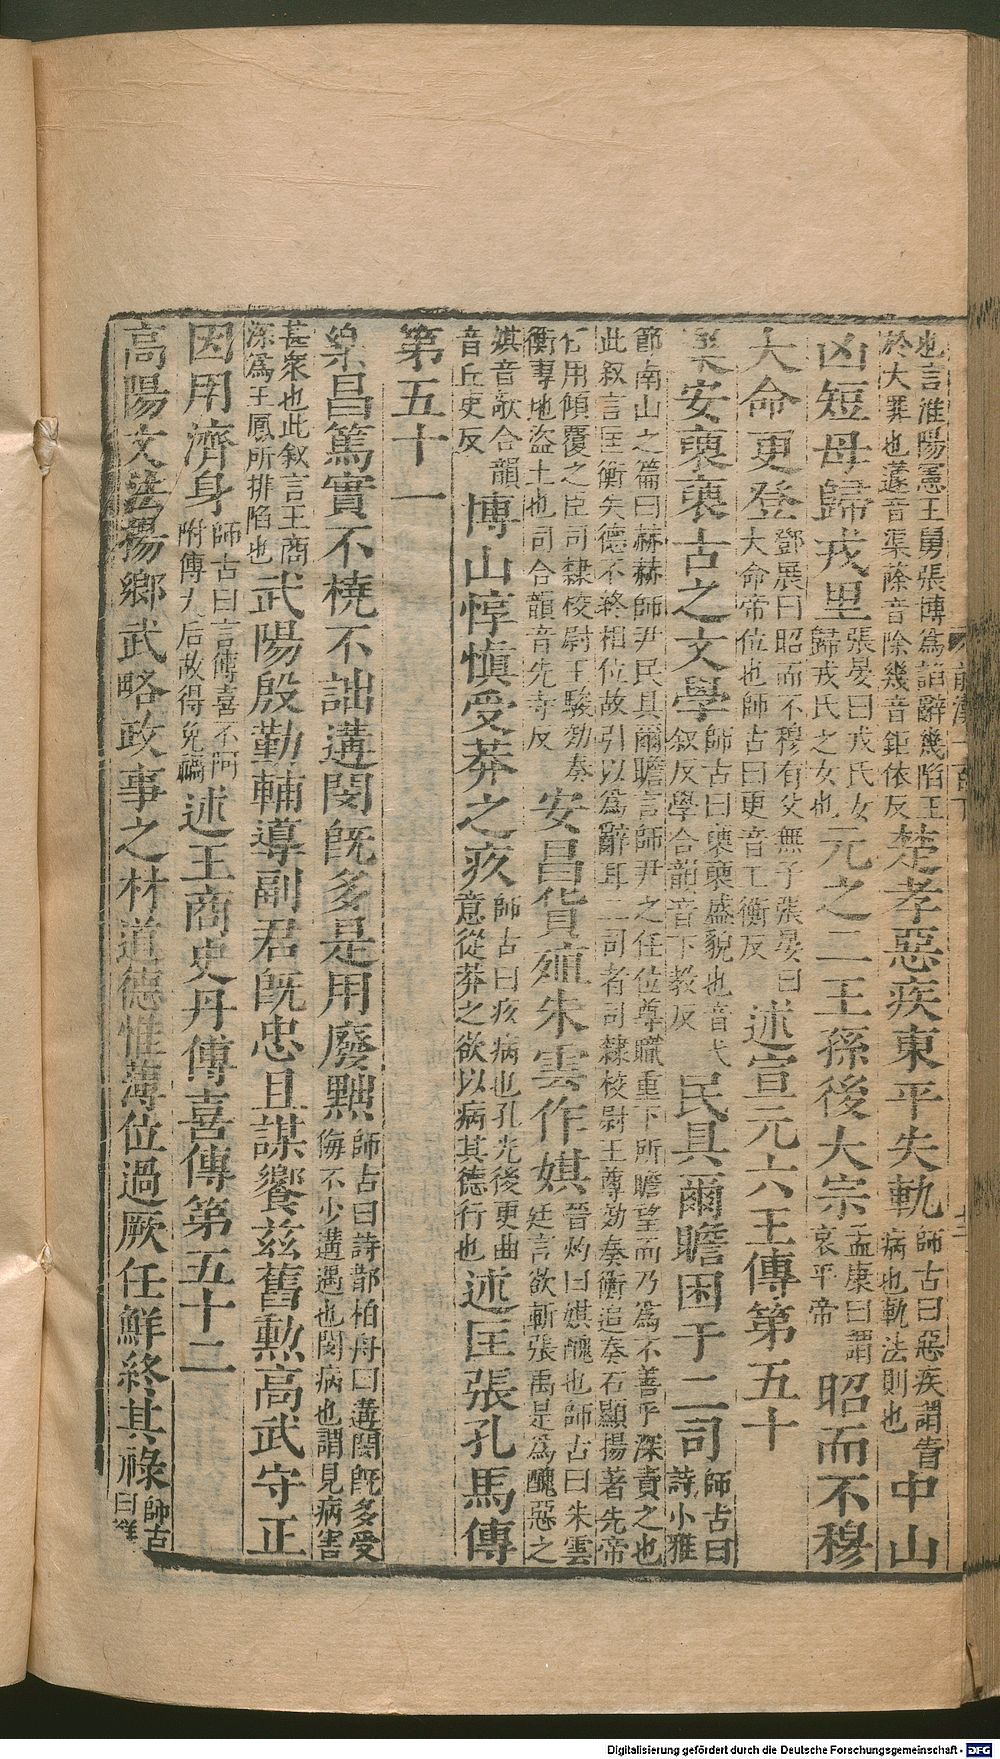 也言淮陽憲王舅張博為諂辭幾陷王
於大罪也蘧音渠蒢音除幾音鉅依反
楚孝惡疾東平失軌
師古曰惡疾謂眚
病也軌法則也
中山
凶短母歸戎里
張晏曰戎氏女
歸戎氏之女也
元之二王孫後大宗
孟康曰謂
哀平帝
昭而不穆
大命更登
鄧展曰昭而不穆有父無子張晏曰
大命帝位也師古曰更音工衡反
述宣元六王傳第五十
樂安褏褏古之文學
師古曰褏褏盛貌也音弋
叙反學合韻音下教反
民具爾瞻困于二司
師古曰
詩小雅
節南山之篇曰赫赫師尹民具爾瞻言師尹之任位尊職重下所瞻望而乃為不善乎深責之也
此叙言匡衡失德不終相位故引以為辭耳二司者司隸校尉王尊劾奏衡追奏石顯揚著先帝
仁用傾覆之臣司隸校尉王駿劾奏
衡專地盜土也司合韻音先寺反
安昌貨殖朱雲作娸
晉灼曰娸醜也師古曰朱雲
廷言欲斬張禹是為醜惡之
娸音欺合韻
音丘吏反
博山惇愼受莽之疚
師古曰疚病也孔光後更曲
意從莽之欲以病其德行也
述匡張孔馬傳
第五十一
樂昌篤實不橈不詘遘閔旣多是用廢黜
師古曰詩邶柏舟曰遘閔旣多受
侮不少遘遇也閔病也謂見病害
甚衆也此叙言王商
深為王鳳所排陷也
武陽殷勤輔導副君旣忠且謀饗茲舊勲高武守正
因用濟身
師古曰言傅喜不阿
附傅太后故得免禍
述王商史丹傅喜傳第五十二
高陽文法揚鄉武略政事之材道德惟薄位過厥任鮮終其祿
師古
曰鮮
前漢一百下
Digitalisierung gefördert durch die Deutsche Forschungsgemeinschaft - DFG